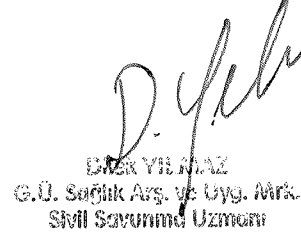 D. Yıl
Dilek YILMAZ
G.Ü. Sağlık Arş. ve Uyg. Mrk.
Sivil Savunma Uzmanı